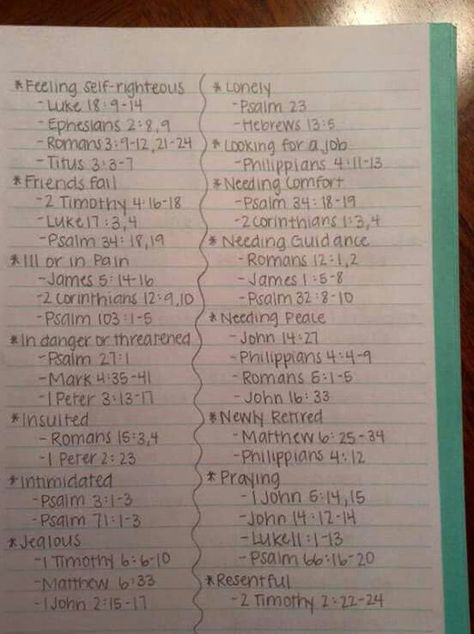 *Feeling self-righteous
-Luke 18:9-14
-Ephesians 2:8,9
-Romans 3:9-12,21-24
-Titus 3:3-7
*Friends fail
-2 Timothy 4:16-18
-Luke 17:3,4
-Psalm 34:18,19
*Ill or in Pain
-James 5:14-16
-2 Corinthians 12:9,10
-Psalm 103:1-5
*In danger or threatened
-Psalm 27:1
-Mark 4:35-41
-1 Peter 3:13-17
*Insulted
-Romans 15:3,4
-1 Peter 2:23
*Intimidated
-Psalm 3:1-3
-Psalm 71:1-3
*Jealous
-1 Timothy 6:6-10
-Matthew 6:33
-1 John 2:15-17
*Lonely
-Psalm 23
-Hebrews 13:5
*Looking for a job
-Philippians 4:11-13
*Needing Comfort
-Psalm 34:18-19
-2 Corinthians 1:3,4
*Needing Guidance
-Romans 12:1,2
-James 1:5-8
-Psalm 32:8-10
*Needing Peace
-John 14:27
-Philippians 4:4-9
-Romans 5:1-5
-John 16:33
*Newly Retired
-Matthew 6:25-34
-Philippians 4:12
*Praying
-1 John 5:14,15
-John 14:12-14
-Luke 11:1-13
-Psalm 66:16-20
*Resentful
-2 Timothy 2:22-24